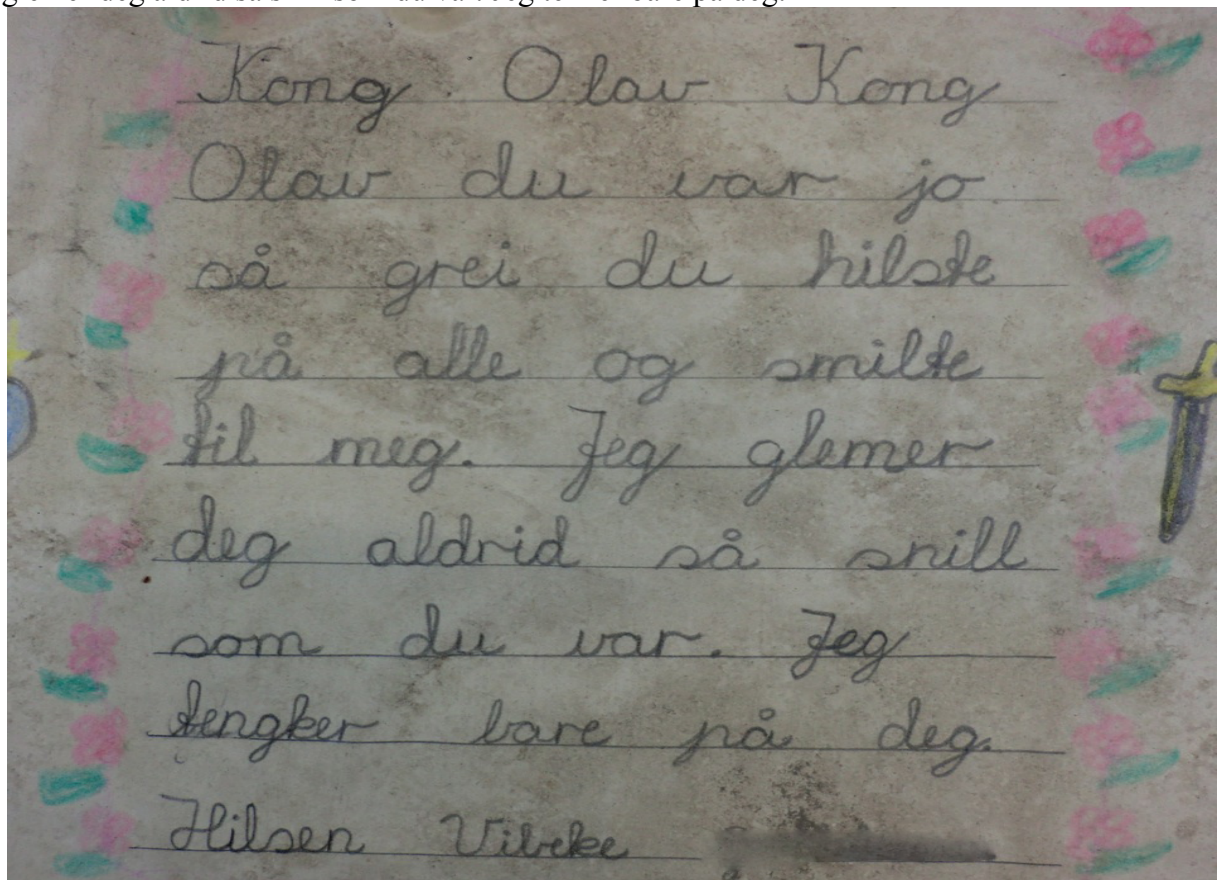 Kong Olav Kong
Olav du var jo
så grei du hilste
på alle og smilte
til meg. Jeg glemer
deg aldrid så snill
som du var. Jeg
tengker bare på deg.
Hilsen Vibeke